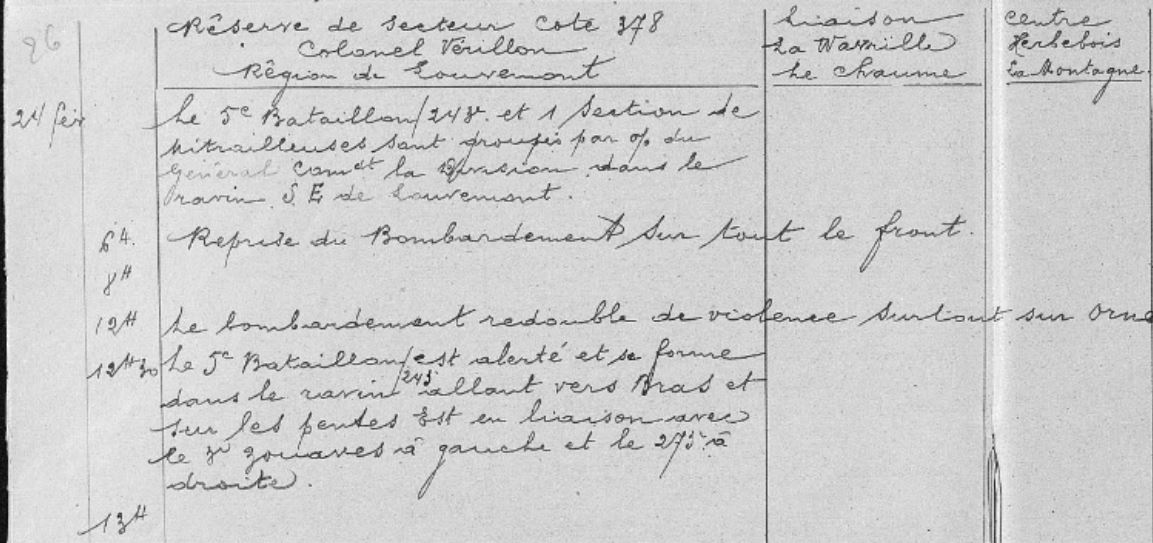 86
Réserve de Secteur Cote 378
Colonel Vérillon
Région de Louvemont
Liaison
La Wavrille
Le Chaume
Centre
Herbebois
La Montagne.
24 fév
Le 5e Bataillon/243e et 1 Section de
Mitrailleuses sont groupés par o/ du
Général Comdt la Division dans le
ravin S E de Louvemont.
6H. Reprise du Bombardement sur tout le front.
8H
12H Le bombardement redouble de violence surtout sur Orne
12H30 Le 5e Bataillon/243e est alerté et se forme
dans le ravin allant vers Bras et
sur les pentes Est en liaison avec
le 3e zouaves à gauche et le 273e à
droite.
13H